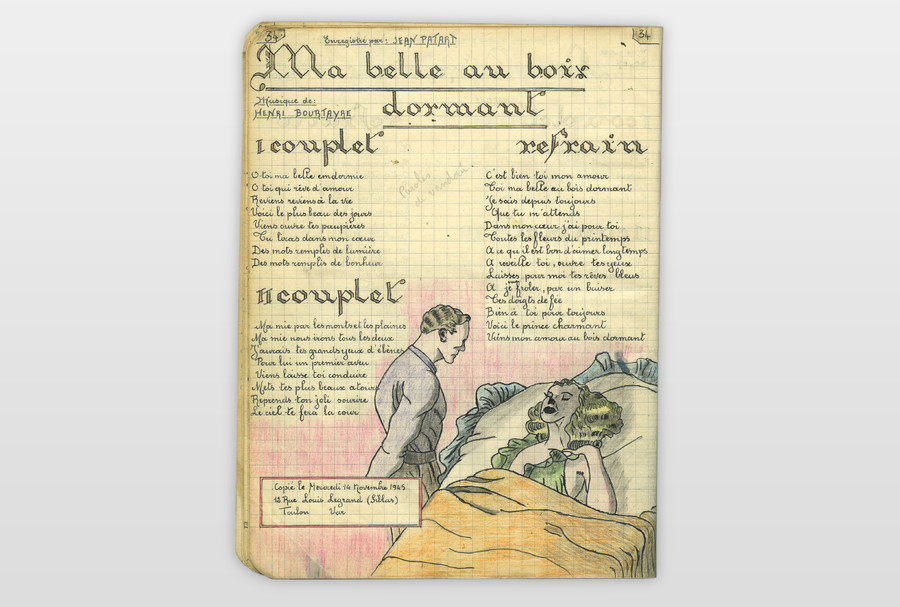 34
34
Enregistré par: JEAN PATART
Ma belle au boix
dormant
Musique de:
HENRI BOURTAYRE
Paroles
de
I couplet
O toi ma belle endormie
O toi qui rêve d'amour
Reviens reviens à la vie
Voici le plus beau des jours
Viens ouvre tes paupières
Tu liras dans mon cœur
Des mots remplis de lumière
Des mots remplis de bonheur
II couplet
Ma mie par les monts et les plaines
Ma mie nous irons tous les deux
J'aurais tes grands yeux d'ébènes
Pour lui un premier aveu
Viens laisse toi conduire
Mets tes plus beaux atours
Reprends ton joli sourire
Le ciel te fera la cour
refrain
C'est bien toi mon amour
Toi ma belle au bois dormant
Je sais depuis toujours
Que tu m'attends
Dans mon cœur j'ai pour toi
Toutes les fleurs du printemps
A ce qu'il est bon d'aimer longtemps
A reveille toi, ouvre tes yeux
Laisses pour moi tes rêves bleus
A je froler, par un baiser
Tes doigts de fée
Bien à toi pour toujours
Voici le prince charmant
Viens mon amour au bois dormant
Copié le Mercredi 14 Novembre 1945
12 Rue Louis Legrand
Toulon Var